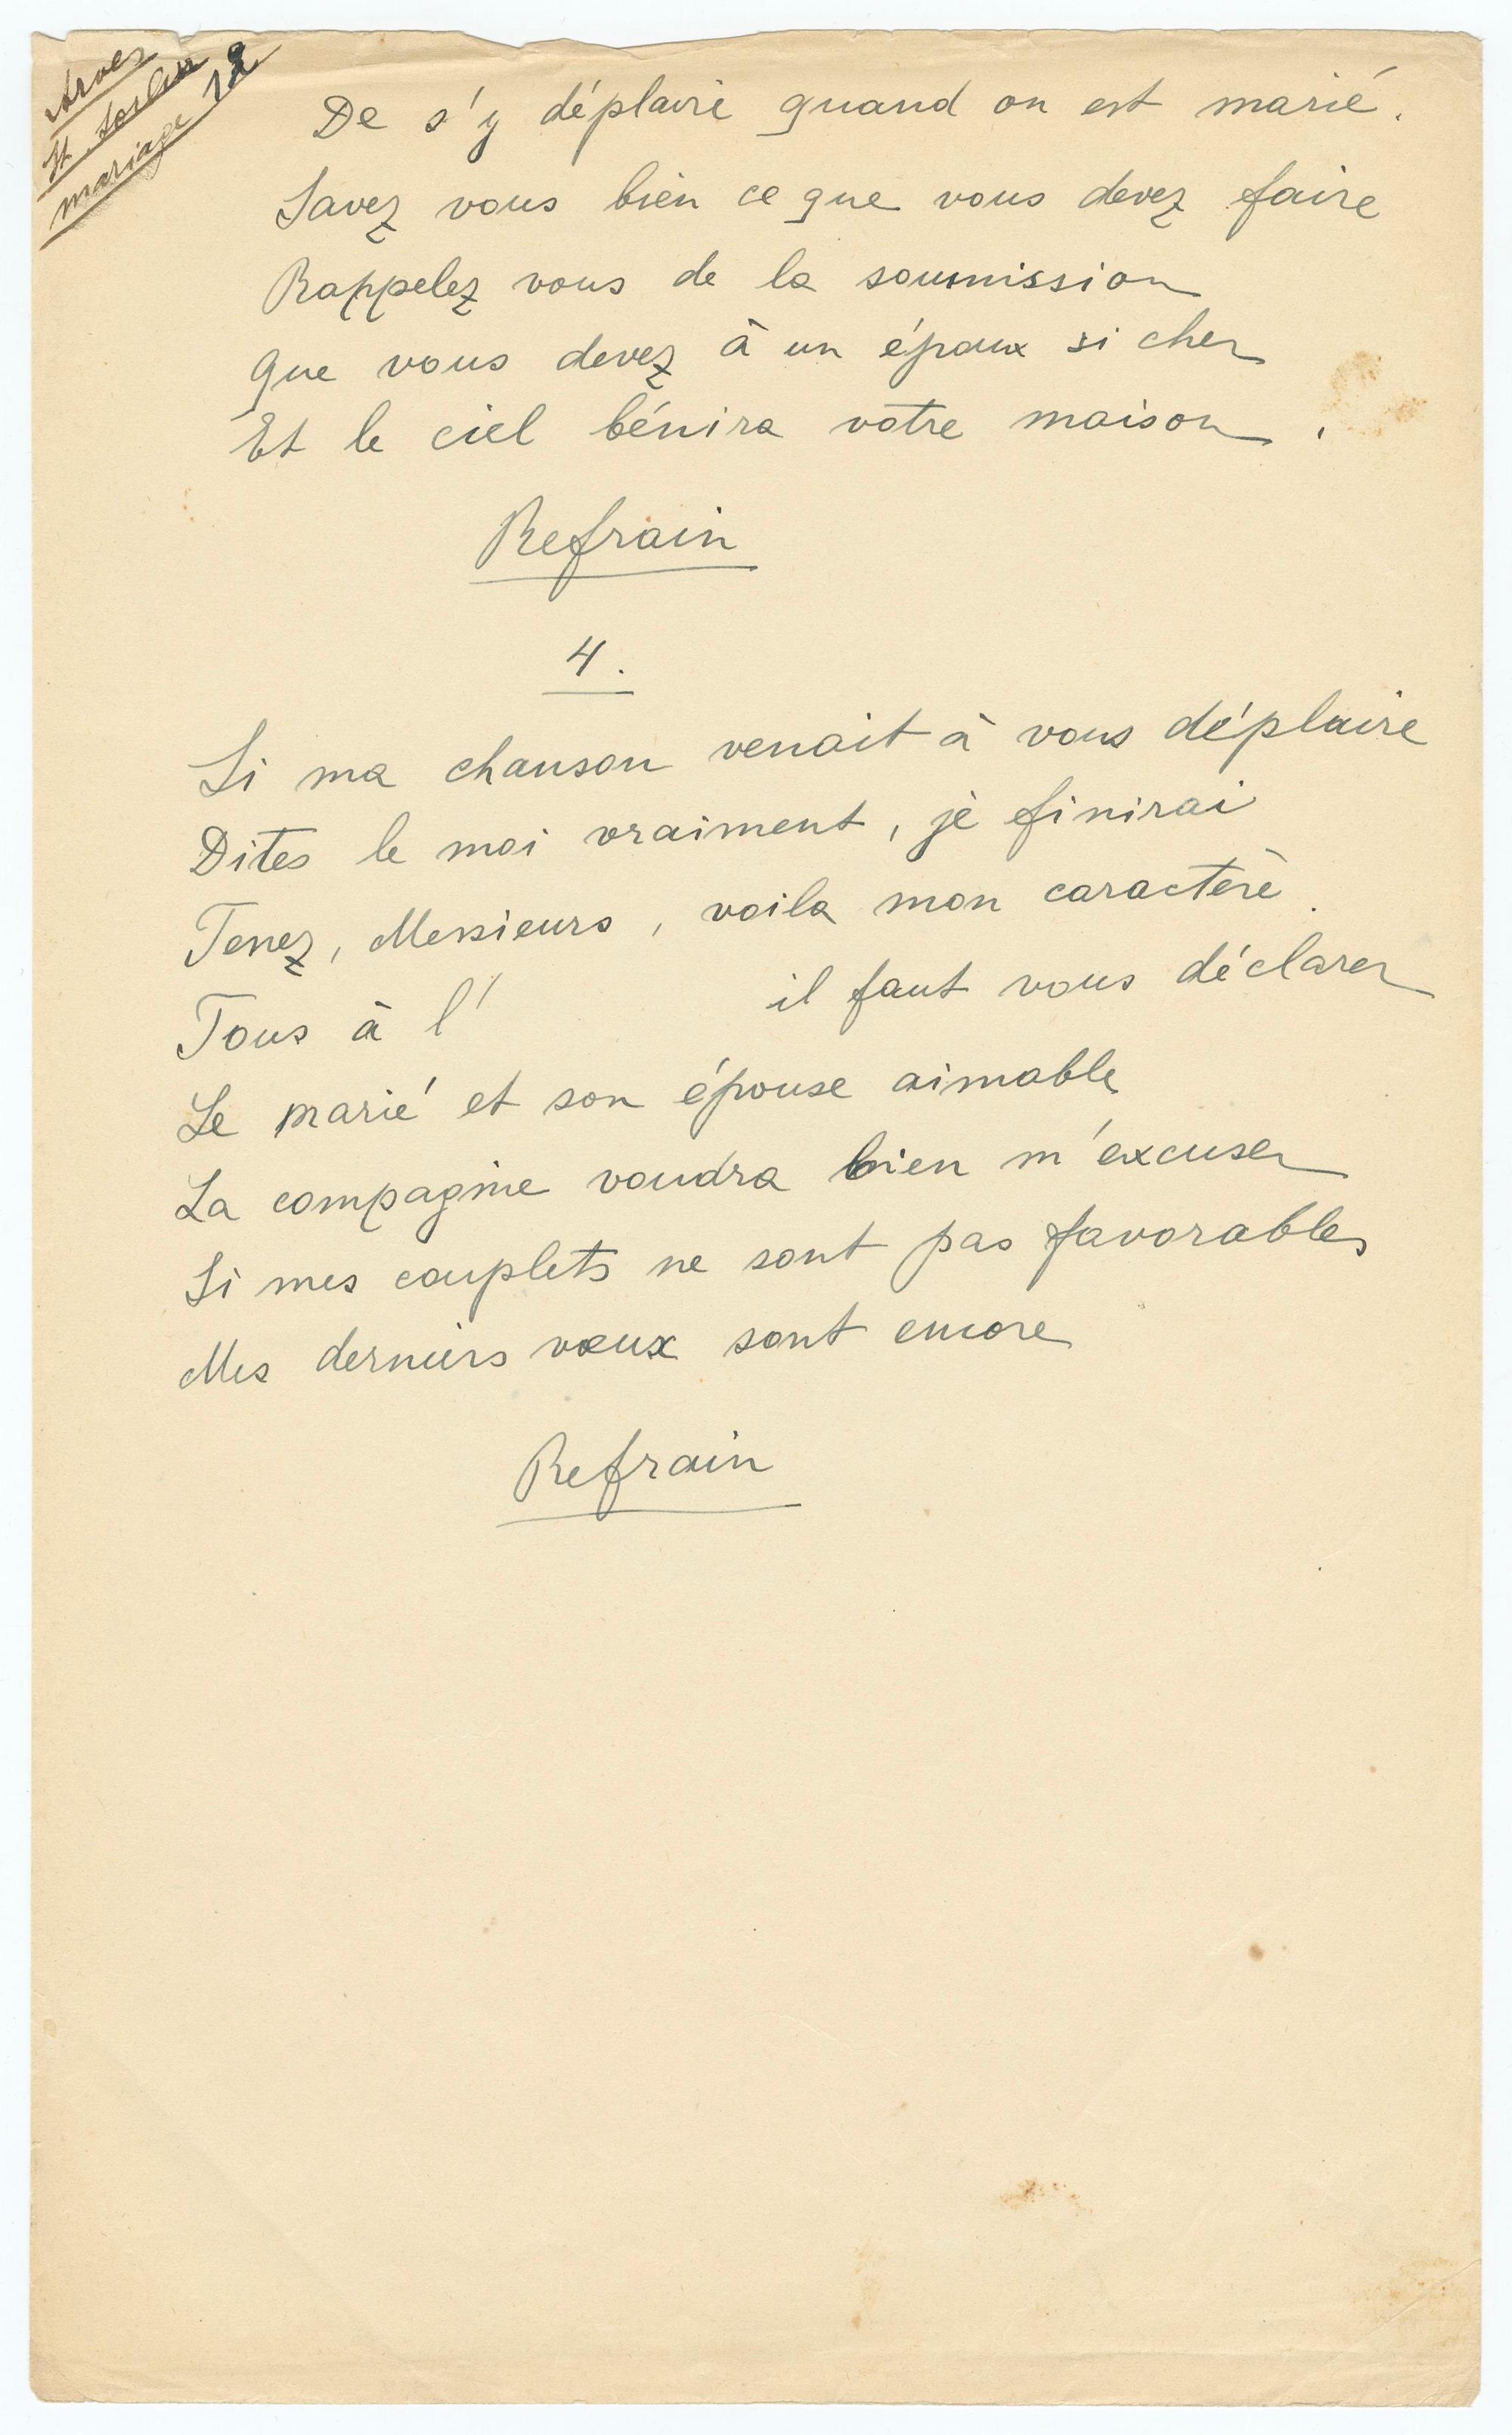 Arves
St. Sorlin
mariage 12
De s'y déplaire quand on est marié.
Savez vous bien ce que vous devez faire
Rappelez vous de la soumission
Que vous devez à un époux si cher
Et le ciel bénira votre maison.
Refrain
4.
Si ma chanson venait à vous déplaire
Dites le moi vraiment, je finirai
Tenez, Messieurs, voila mon caractère.
Tous à l'               il faut vous déclarer
Le marié et son épouse aimable
La compagnie voudra bien m'excuser
Si mes couplets ne sont pas favorables
Mes derniers vœux sont encore
Refrain